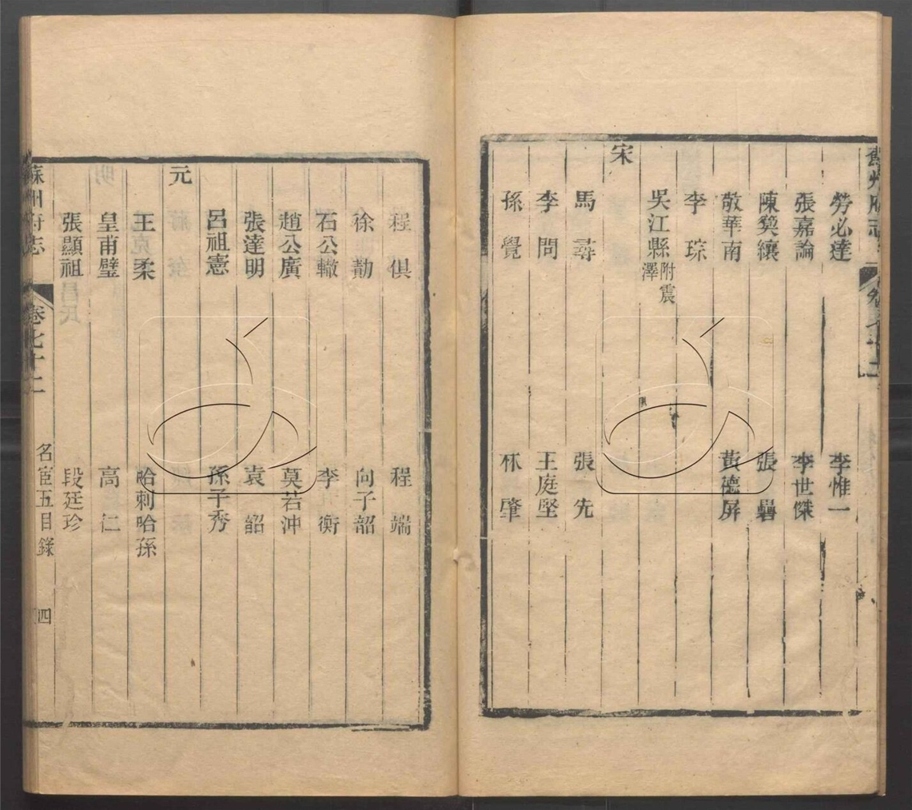 勞必達 李惟一
張嘉論 李世傑
陳奕纕 張曇
敬華南 黃德屏
李琮
吳江縣附震澤
宋
馬尋 張先
李問 王庭堅
孫覺 林肇
程俱 程端
徐勣 向子韶
石公轍 李衡
趙公廣 莫若沖
張達明 袁韶
呂祖憲 孫子秀
元
王柔 哈剌哈孫
皇甫璧 高仁
張顯祖 段廷珍
蘇州府志 卷七十二 名宦五目錄 四